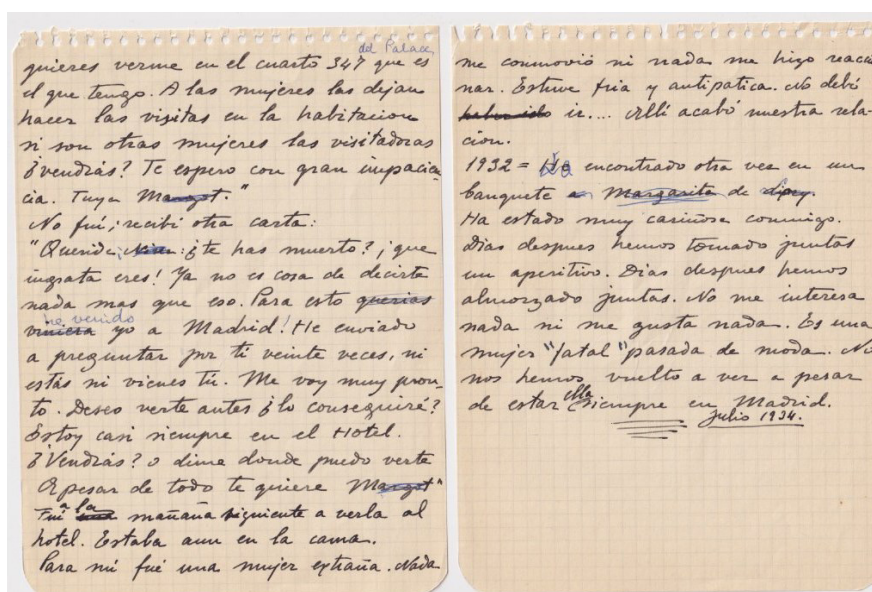 del Palace
quieres verme en el cuarto 347 que es
el que tengo. A las mujeres las dejan
hacer las visitas en la habitacion
si son otras mujeres las visitadoras
¿vendrás? Te espero con gran impacien-
cia. Tuya Margot."
No fuí; recibi otra carta:
"Querida : ¿te has muerto? ¡que
ingrata eres! Ya no es cosa de decirte
nada mas que eso. Para esto querias
he venido
viniera yo a Madrid! He enviado
a preguntar por ti veinte veces, ni
estás ni vienes tú. Me voy muy pron-
to. Deseo verte antes ¿lo conseguiré?
Estoy casi siempre en el Hotel.
¿Vendrás? o dime donde puedo verte
Apesar de todo te quiere Margot"
Fui a la mañana siguiente a verla al
hotel. Estaba aun en la cama.
Para mi fué una mujer extraña. Nada
me conmovió ni nada me hizo reaccio
nar. Estuve fria y antipatica. No debó
haber ido ir.... Allí acabó nuestra rela-
cion.
1932 = He encontrado otra vez en un
banquete a Margarita de
Ha estado muy cariñosa conmigo.
Dias despues hemos tomado juntas
un aperitivo. Dias despues hemos
almorzado juntas. No me interesa
nada ni me gusta nada. Es una
mujer "fatal" pasada de moda. No
nos hemos vuelto a ver a pesar
de estar ella siempre en Madrid.
Julio 1934.